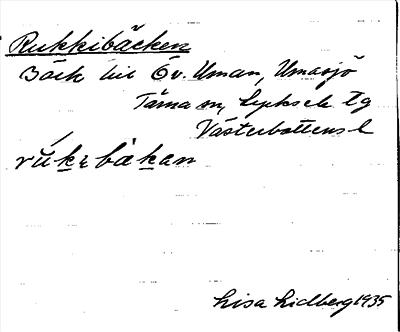 Rukkibäcken
Bäck till Öv. Uman, Umasjö
Tärna sn, Lycksele tg
Västerbottens l
rúkɩbäkan
Lisa Lidberg 1935